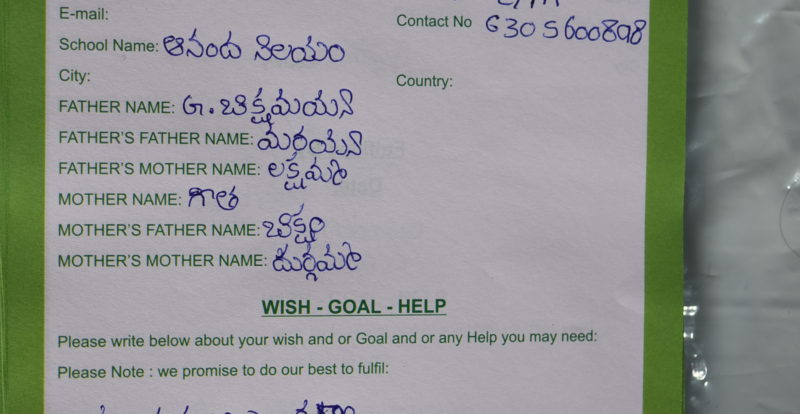 E-mail:
Contact No 6305600898
School Name: ఆనంద నిలయం
City:
Country:
FATHER NAME: G. బిక్షమయ్య
FATHER'S FATHER NAME: మరయ్య
FATHER'S MOTHER NAME: లక్ష్మమ్మ
MOTHER NAME: గీత
MOTHER'S FATHER NAME: బిక్షం
MOTHER'S MOTHER NAME: దుర్గమ్మ
WISH - GOAL - HELP
Please write below about your wish and or Goal and or any Help you may need:
Please Note : we promise to do our best to fulfil: